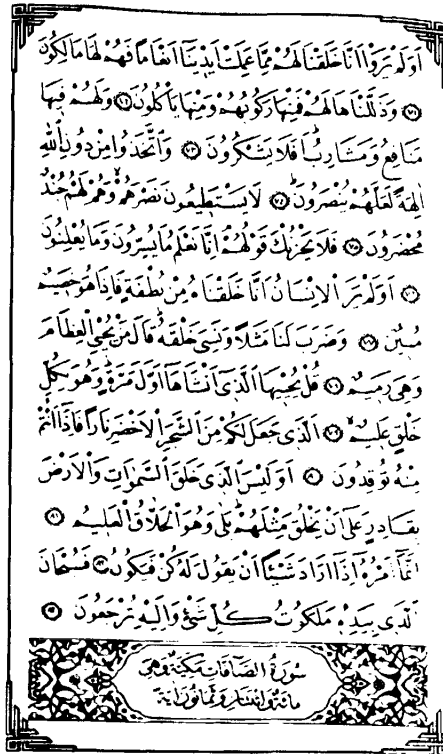 اَوَلَمْ يَرَوْا اَنَّا خَلَقْنَا لَهُمْ مِمَّا عَمِلَتْ اَيْدٖينَٓا اَنْعَاماً فَهُمْ لَهَا مَالِكُونَ
﴿٧١﴾ وَذَلَّلْنَاهَا لَهُمْ فَمِنْهَا رَكُوبُهُمْ وَمِنْهَا يَأْكُلُونَ ﴿٧٢﴾ وَلَهُمْ فٖيهَا
مَنَافِعُ وَمَشَارِبُ اَفَلَا يَشْكُرُونَ ﴿٧٣﴾ وَاتَّخَذُوا مِنْ دُونِ اللّٰهِ
اٰلِهَةً لَعَلَّهُمْ يُنْصَرُونَ ﴿٧٤﴾ لَا يَسْتَطٖيعُونَ نَصْرَهُمْ وَهُمْ لَهُمْ جُنْدٌ
مُحْضَرُونَ ﴿٧٥﴾ فَلَا يَحْزُنْكَ قَوْلُهُمْ اِنَّا نَعْلَمُ مَا يُسِرُّونَ وَمَا يُعْلِنُونَ
﴿٧٦﴾ اَوَلَمْ يَرَ الْاِنْسَانُ اَنَّا خَلَقْنَاهُ مِنْ نُطْفَةٍ فَاِذَا هُوَ خَصٖيمٌ
مُبٖينٌ ﴿٧٧﴾ وَضَرَبَ لَنَا مَثَلاً وَنَسِيَ خَلْقَهُ قَالَ مَنْ يُحْيِ الْعِظَامَ
وَهِيَ رَمٖيمٌ ﴿٧٨﴾ قُلْ يُحْيٖيهَا الَّذٖٓي اَنْشَاَهَٓا اَوَّلَ مَرَّةٍ وَهُوَ بِكُلِّ
خَلْقٍ عَلٖيمٌ ﴿٧٩﴾ اَلَّذٖي جَعَلَ لَكُمْ مِنَ الشَّجَرِ الْاَخْضَرِ نَاراً فَاِذَٓا اَنْتُمْ
مِنْهُ تُوقِدُونَ ﴿٨٠﴾ اَوَلَيْسَ الَّذٖي خَلَقَ السَّمٰوَاتِ وَالْاَرْضَ
بِقَادِرٍ عَلٰٓى اَنْ يَخْلُقَ مِثْلَهُمْ بَلٰى وَهُوَ الْخَلَّاقُ الْعَلٖيمُ ﴿٨١﴾
اِنَّمَٓا اَمْرُهُٓ اِذَٓا اَرَادَ شَيْـٔاً اَنْ يَقُولَ لَهُ كُنْ فَيَكُونُ ﴿٨٢﴾ فَسُبْحَانَ
الَّذٖي بِيَدِهٖ مَلَكُوتُ كُلِّ شَيْءٍ وَاِلَيْهِ تُرْجَعُونَ ﴿٨٣﴾
سُورَةُ الصَّافَّاتِ مَكِّيَّةٌ وَهِيَ
مِائَةٌ وَاثْنَتَانِ وَثَمَانُونَ اٰيَةً